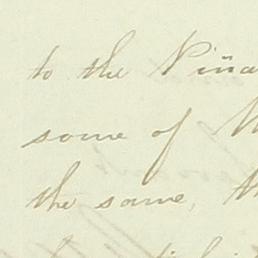 to the Piña
some of
the same, th